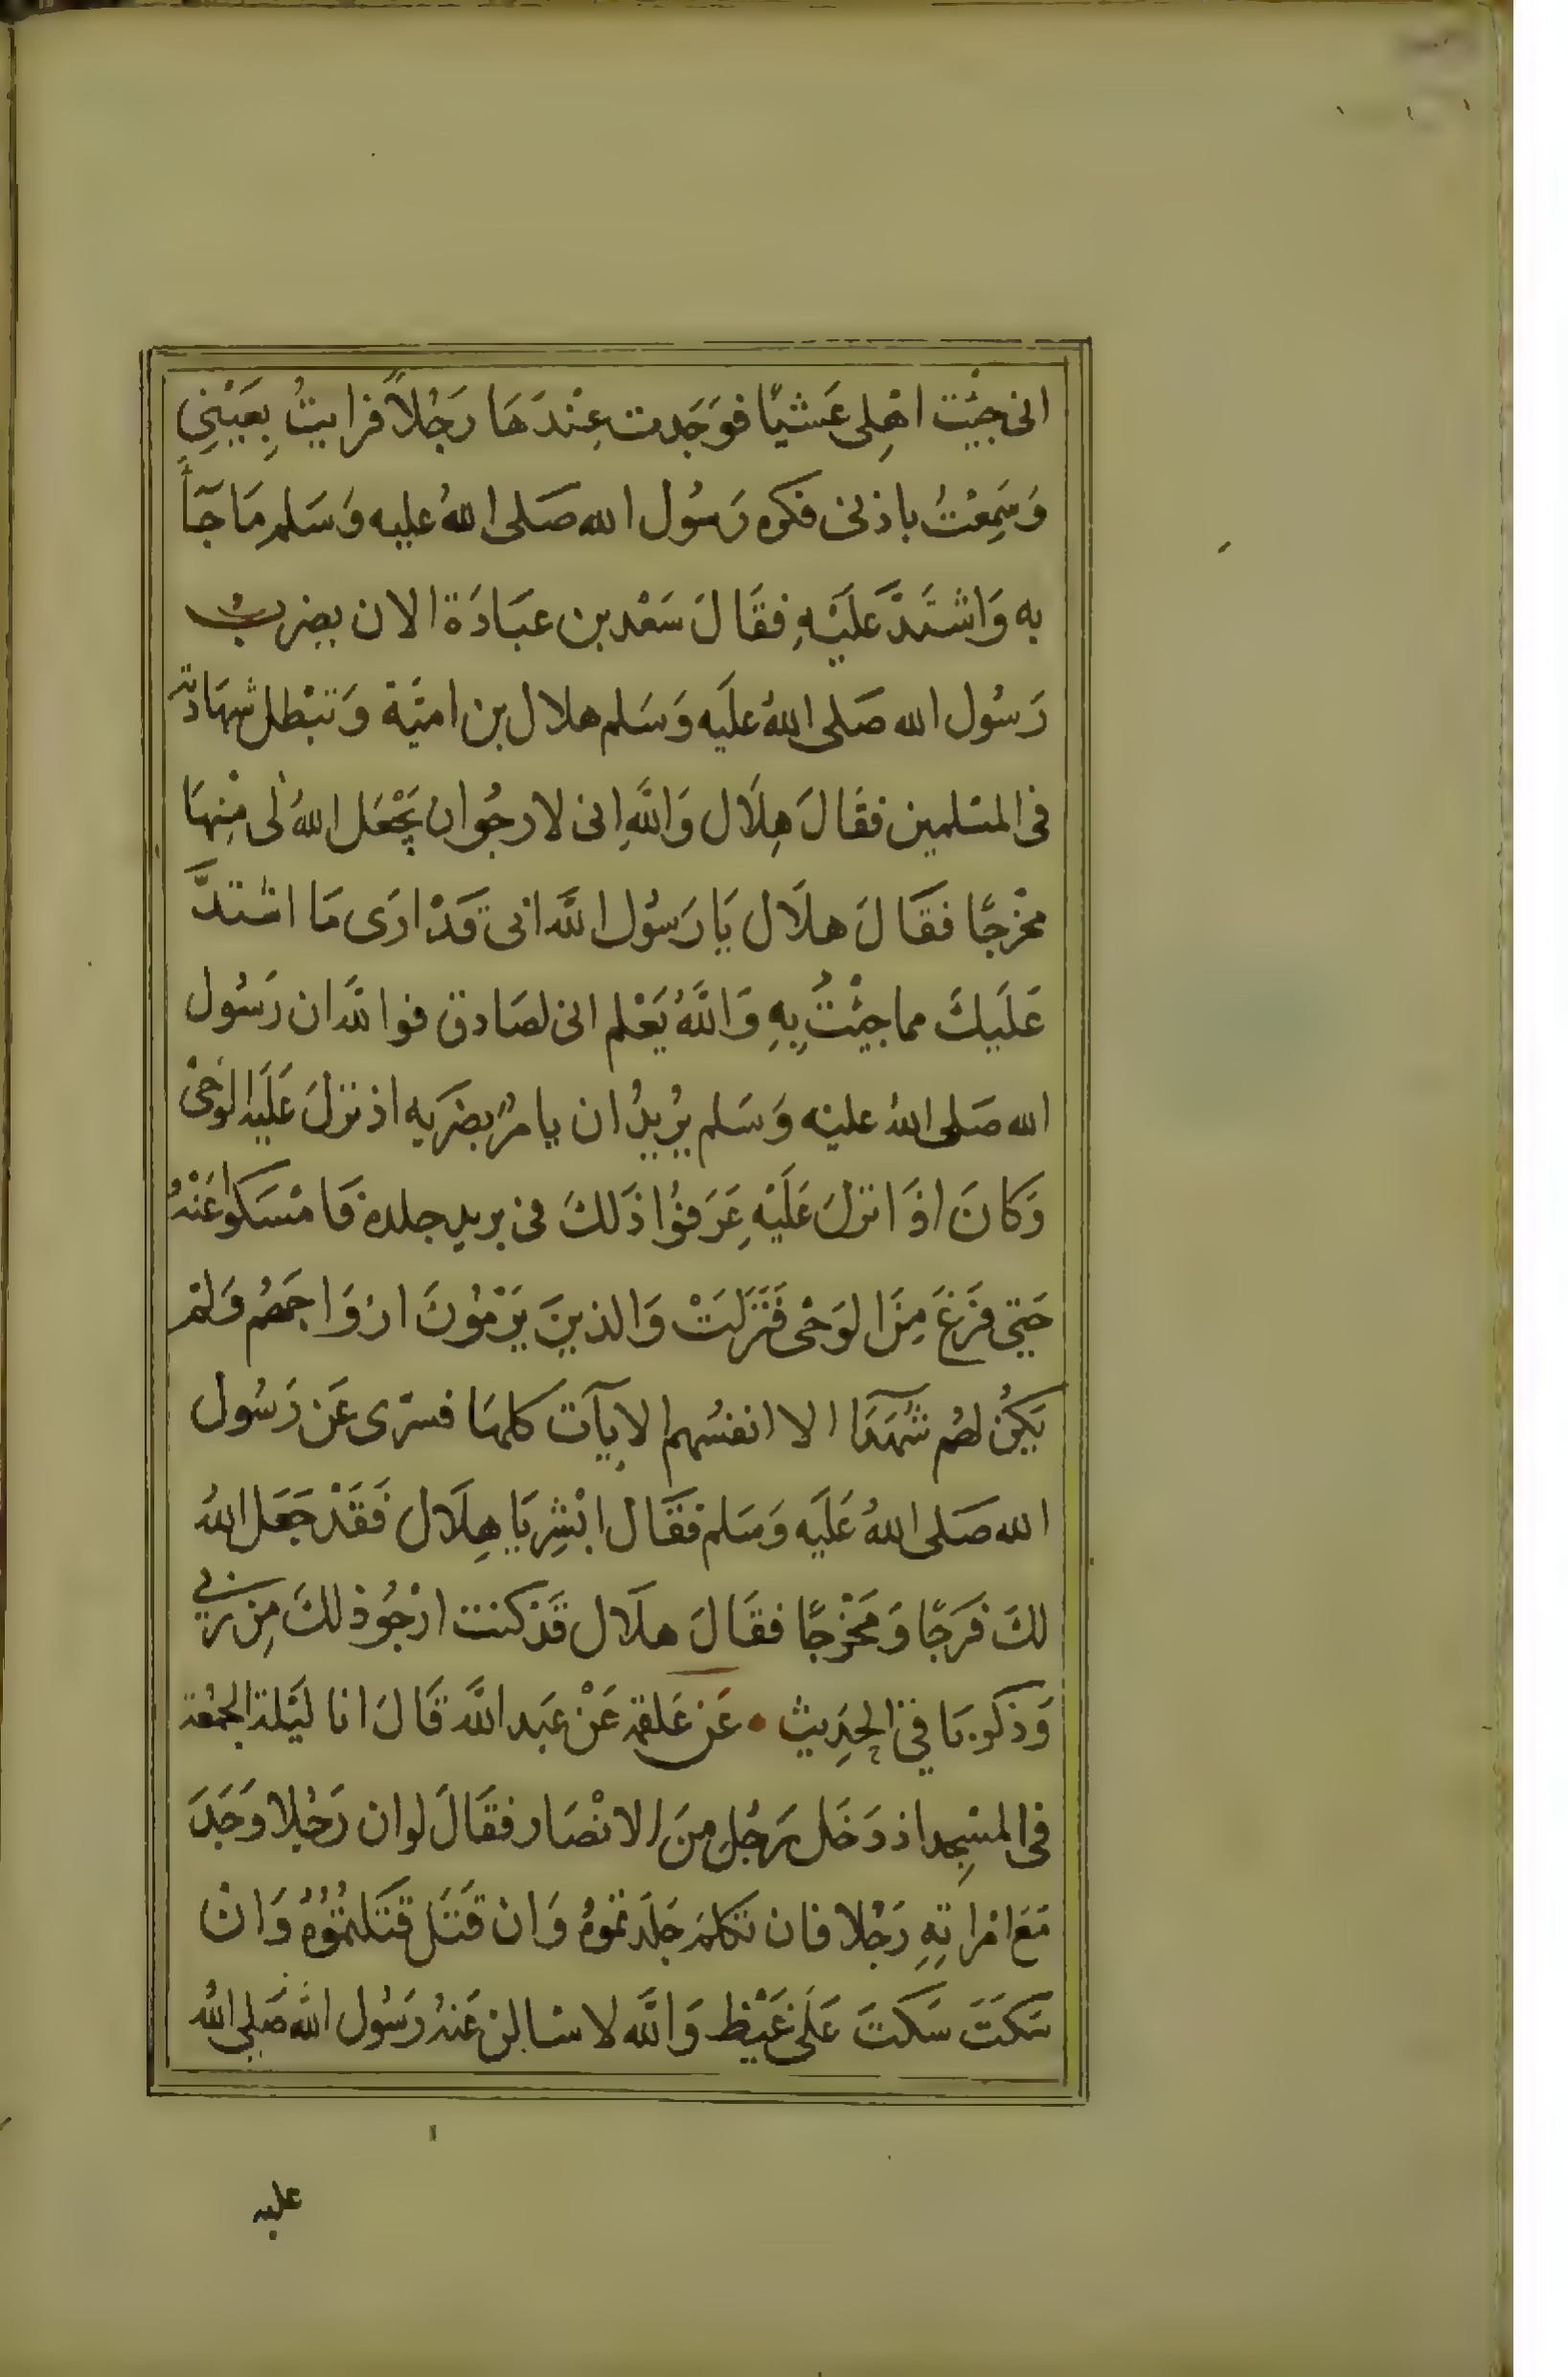 انى جيْت اهْلِى عَشيًا فوَجَدت عِنْدَهَا رَجُلاً فرايتُ بِعَيْنِي
وَسَمِعْتُ باذنى فكره رَسُول الله صَلى اللهُ عليه وَسَلم مَا جَآأً
به وَاشتَدَّ عَلَيْهِ فقَالَ سَعْد بن عبَادَة الان يضرب
رَسُول الله صَلى اللهُ علَيه وَسَلم هلال بن اميَّة وَتبْطل شهَادته
فى المسْلمين فقَالَ هِلَال وَاللَّهِ انى لارجُوان يَجْعَل اللهُ لى مِنْهَا
مخْرجًا فقَالَ هلَال يَا رَسُول اللَّه انى قَدْ ارَى مَا اشتدَّ
عَلَيكَ مما جيْتُ بِهِ وَاللَّهُ يَعْلم انى لصَادق فواللَّه ان رَسُول
الله صَلى اللهُ عليْه وَسَلم يُريدُ ان يامرُ بضَربِه اذ نزلَ عَلَيه الوَحْى
وَكانَ اذَا نزلَ عَلَيْهِ عَرَفوُا ذَلكَ فى بربد جلده فَامْسَكوا عَنْهُ
حَتي فرَغَ مِنَ الوَحْى فَنَزلَتْ وَالذينَ يَرْمُونَ ازْوَاجَهُم وَلمْ
يَكُنْ لهُم شُهَدَآ الا انفسُهم الايَآت كلهَا فسرّى عَن رَسُول
الله صَلى اللهُ عَلَيه وَسَلم فقَال ابْشِر يَا هِلَال فَقَدْ جَعَل اللهُ
لكَ فَرَجًا وَمَخْرجًا فقَالَ هلَال قَدْ كنت ارْجُو ذلكَ مِن ربي
وَذكر بَاقي الحَدِيث • عَن عَلقمة عَنْ عَبد اللَّه قَالَ انا ليْلة الجمُعَة
فى المسْجِد اذ دَخَل رَجُل مِنَ الانْصَار فقَالَ لوان رَجُلا وَجَدَ
مَعَ امْرَاتِهِ رَجُلا فان تكلمَ جَلَدتموُهُ وَان قَتَل قتَلتمُوُهُ وَانْ
سَكَتَ سَكَتَ عَلَى غَيْظ وَاللَّه لاسَالن عَنهُ رَسُول اللَّه صَلى اللهُ
عليه